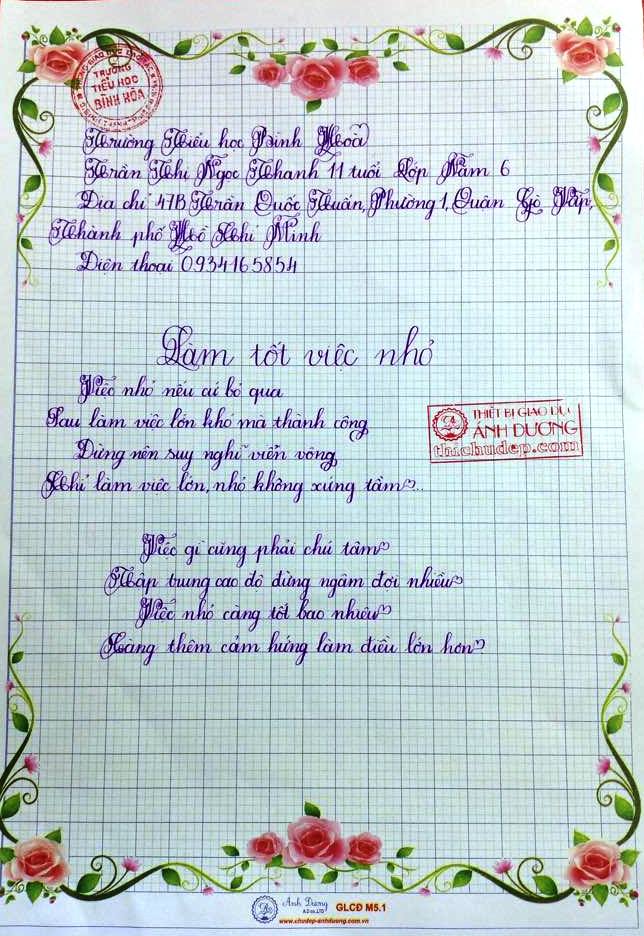 PHÒNG GIÁO DỤC
TRƯỜNG
TIỂU HỌC
BÌNH HÒA
Trường Tiểu học Bình Hoà
Trần Thị Ngọc Thanh 11 tuổi Lớp Năm 6
Địa chỉ 47B Trần Quốc Tuấn, Phường 1, Quận Gò Vấp,
Thành phố Hồ Chí Minh
Điện thoại 0934165854
Làm tốt việc nhỏ
Việc nhỏ nếu cứ bỏ qua
Sau làm việc lớn khó mà thành công
THIẾT BỊ GIÁO DỤC
ÁNH DƯƠNG
thichudep.com
Đừng nên suy nghĩ viển vông
Chỉ làm việc lớn, nhỏ không xứng tầm...
Việc gì cũng phải chú tâm
Tập trung cao độ đừng ngâm đợi nhiều
Việc nhỏ càng tốt bao nhiêu
Càng thêm cảm hứng làm điều lớn hơn
Ánh Dương
A.D co.,LTD
GLCĐ M5.1
www.chudep-anhduong.com.vn